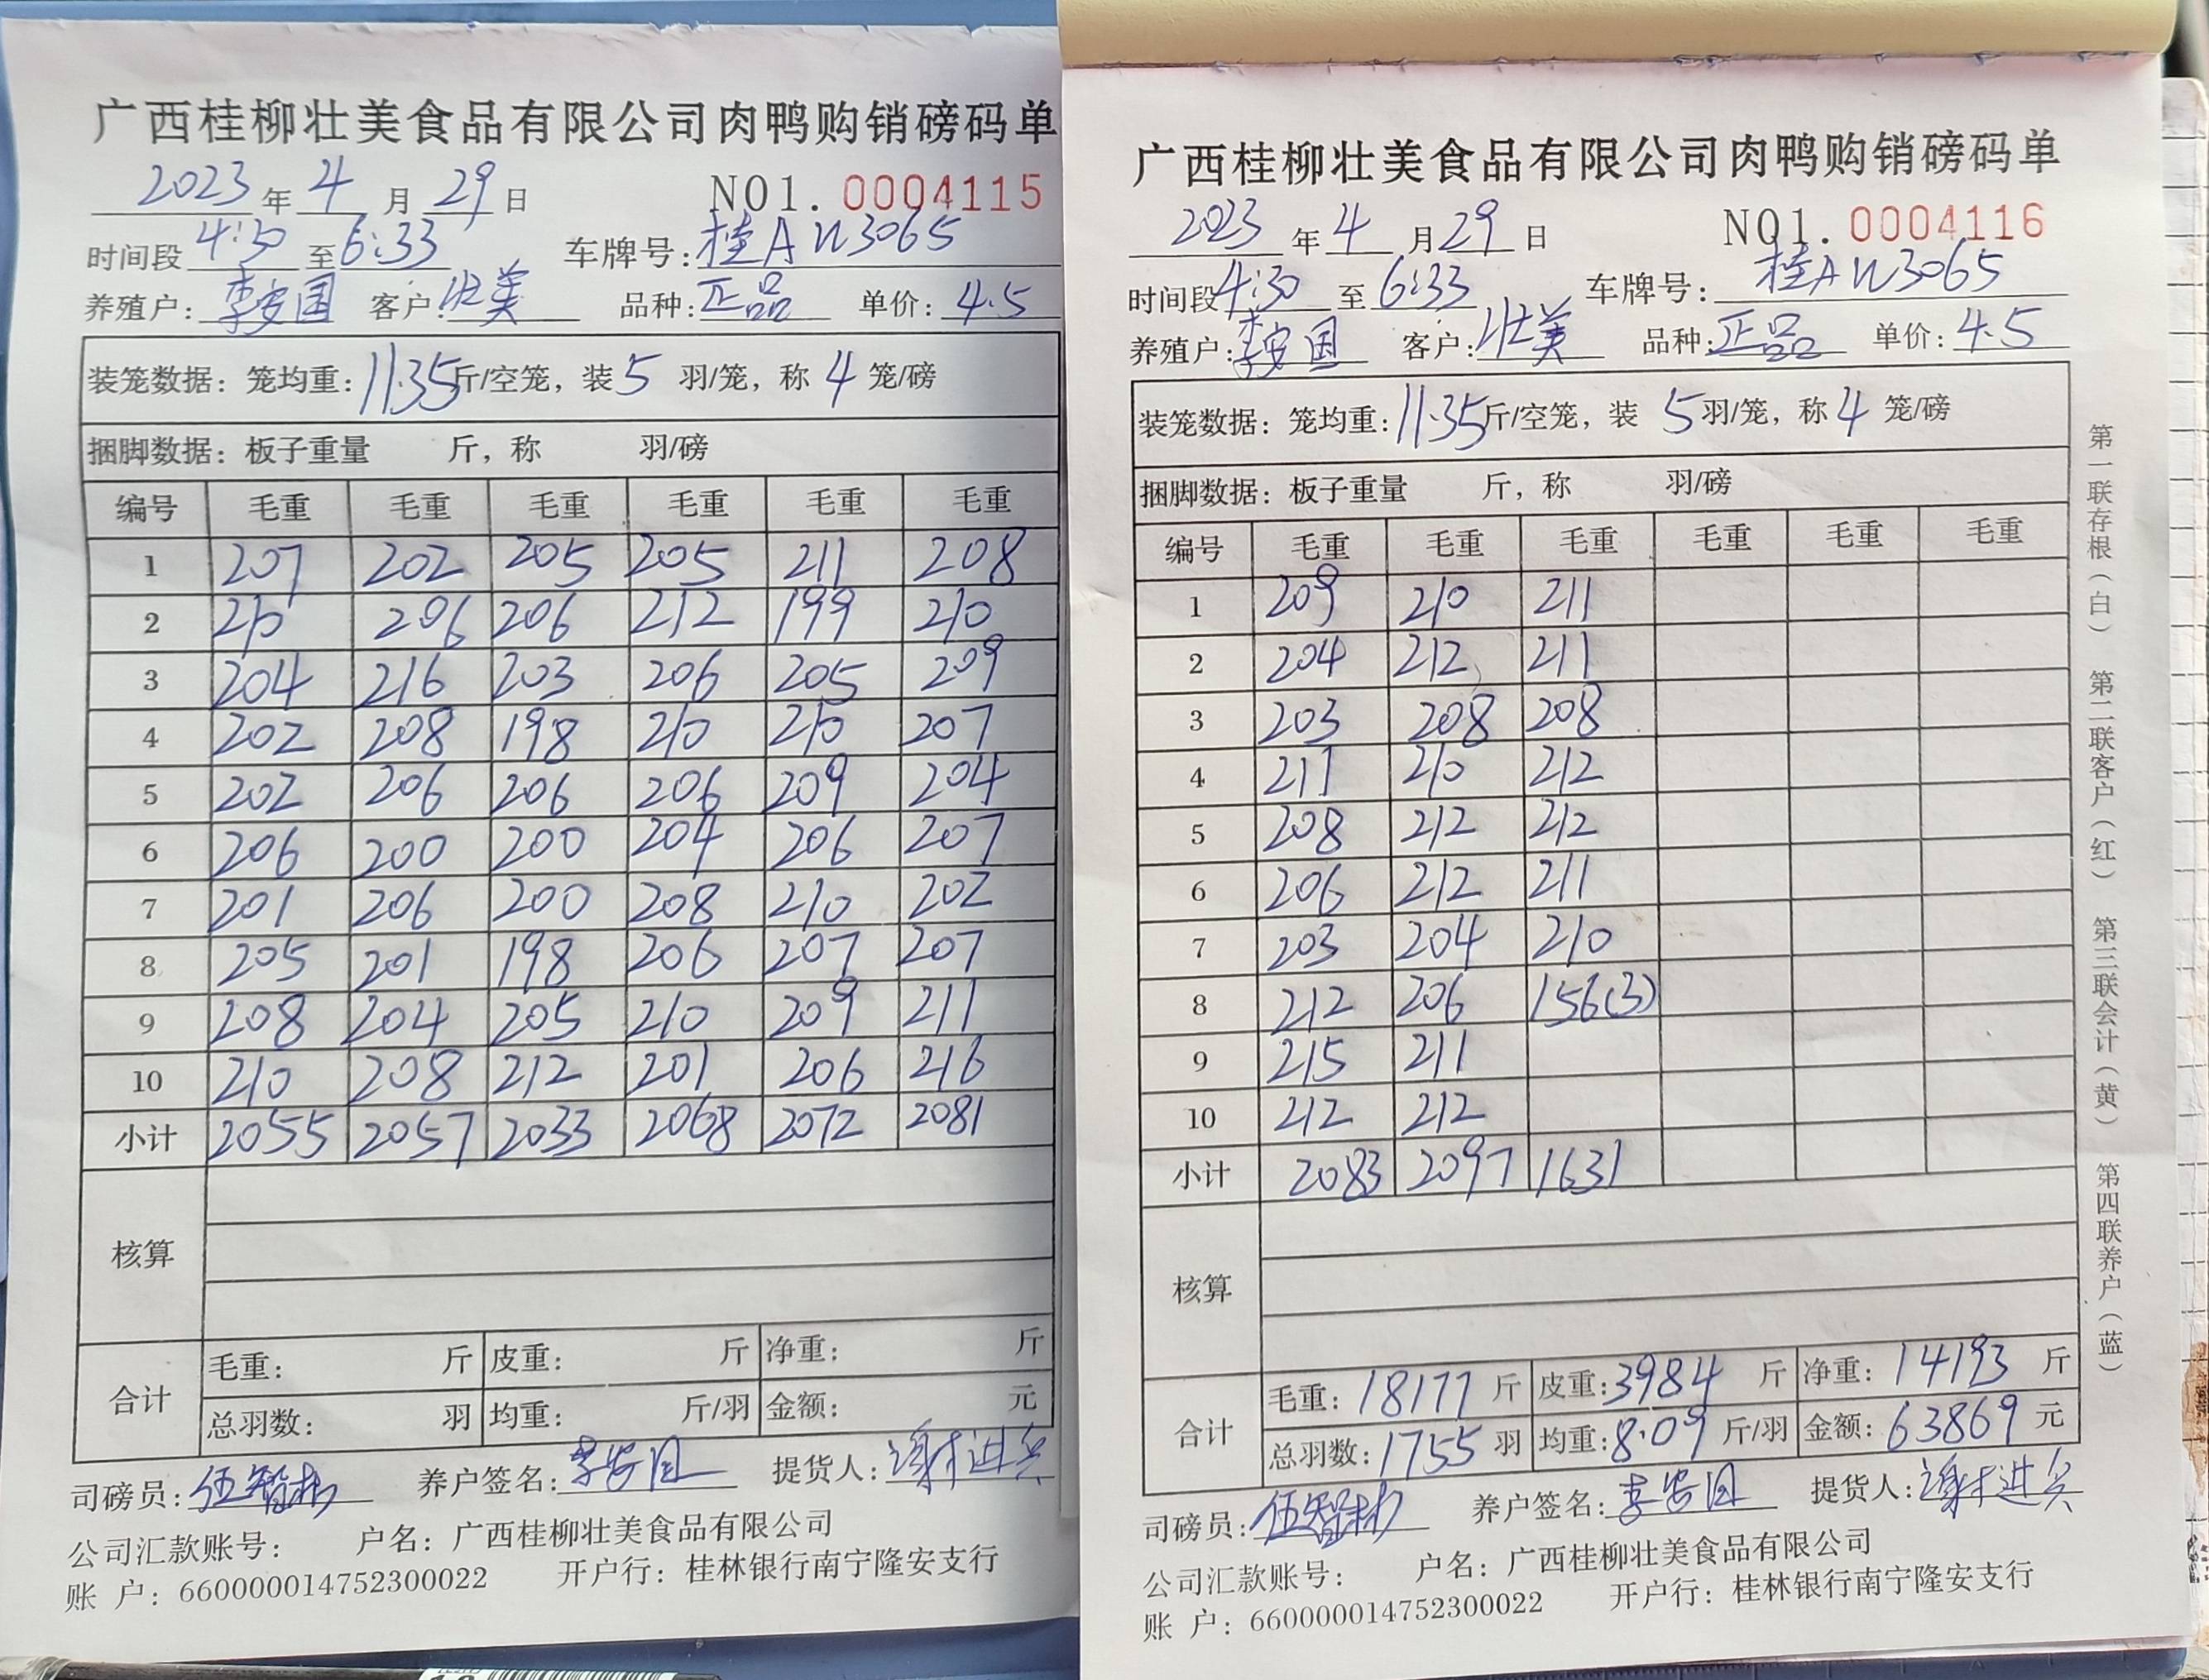 广西桂柳壮美食品有限公司肉鸭购销磅码单
2023 年 4 月 29 日 NO1. 0004115
时间段 4:30 至 6:33 车牌号: 桂A W3065
养殖户: 李安国 客户: 壮美 品种: 正品 单价: 4.5
装笼数据: 笼均重: 11.35 斤/空笼, 装 5 羽/笼, 称 4 笼/磅
捆脚数据: 板子重量 斤, 称 羽/磅
编号 毛重 毛重 毛重 毛重 毛重 毛重
1 207 202 205 205 211 208
2 210 206 206 212 199 210
3 204 216 203 206 205 209
4 202 208 198 210 210 207
5 202 206 206 206 209 204
6 206 200 200 204 206 207
7 201 206 200 208 210 202
8 205 201 198 206 207 207
9 208 204 205 210 209 211
10 210 208 212 201 206 216
小计 2055 2057 2033 2068 2072 2081
核算
合计 毛重: 斤 皮重: 斤 净重: 斤
总羽数: 羽 均重: 斤/羽 金额: 元
司磅员: 伍智 养户签名: 李安国 提货人: 谢进兵
公司汇款账号: 户名: 广西桂柳壮美食品有限公司
账 户: 660000014752300022 开户行: 桂林银行南宁隆安支行
广西桂柳壮美食品有限公司肉鸭购销磅码单
2023 年 4 月 29 日 NO1. 0004116
时间段 4:30 至 6:33 车牌号: 桂A W3065
养殖户: 李安国 客户: 壮美 品种: 正品 单价: 4.5
装笼数据: 笼均重: 11.35 斤/空笼, 装 5 羽/笼, 称 4 笼/磅
捆脚数据: 板子重量 斤, 称 羽/磅
编号 毛重 毛重 毛重 毛重 毛重 毛重
1 209 210 211
2 204 212 211
3 203 208 208
4 211 210 212
5 208 212 212
6 206 212 211
7 203 204 210
8 212 206 156(3)
9 215 211
10 212 212
小计 2083 2097 1631
核算
合计 毛重: 18177 斤 皮重: 3984 斤 净重: 14193 斤
总羽数: 1755 羽 均重: 8.09 斤/羽 金额: 63869 元
司磅员: 伍智 养户签名: 李安国 提货人: 谢进兵
公司汇款账号: 户名: 广西桂柳壮美食品有限公司
账 户: 660000014752300022 开户行: 桂林银行南宁隆安支行
第一联存根(白) 第二联客户(红) 第三联会计(黄) 第四联养户(蓝)